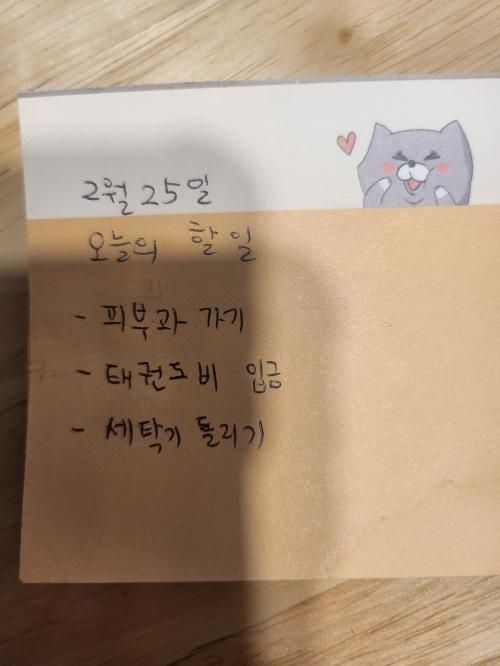 2월 25일
오늘의 할 일
- 피부과 가기
- 태권도비 입금
- 세탁기 돌리기